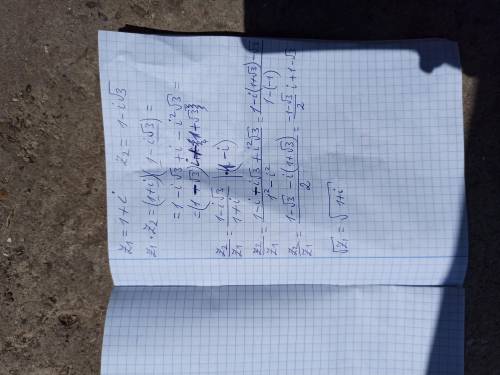 z₁ = 1 + i    z₂ = 1 - i√3
z₁ · z₂ = (1+i)(1 - i√3) =
= 1 - i√3 + i - i²√3 =
= (1 - √3)i + (1 + √3)
z₂/z₁ = (1 - i√3)/(1 + i) · (1 - i)
z₂/z₁ = (1 - i - i√3 + i²√3)/(1² - i²) = (1 - i(1+√3) - √3)/(1 - (-1))
z₂/z₁ = (1 - √3 - i(1+√3))/2 = (-1-√3)/2 i + 1 - √3
√z₁ = √(1+i)